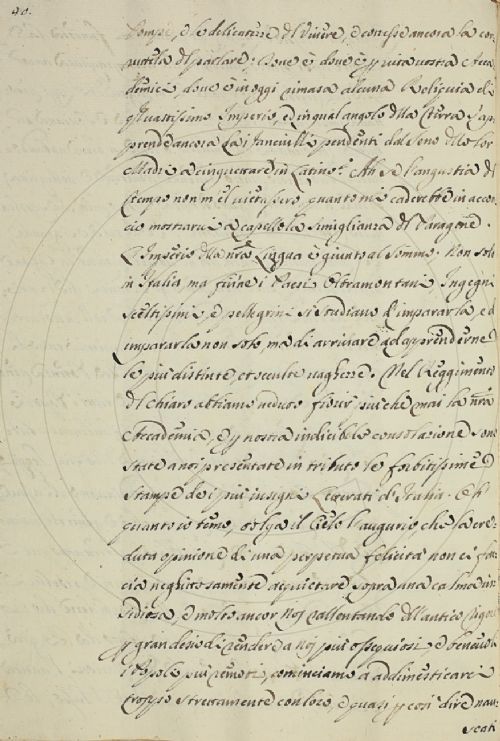 40.
Pompe, e le delicatezze del vivere, e corresse ancora la cor-
ruttela del parlare: Dove è, dove è p vita nostra Acca
demici, dove è in oggi rimasa alcuna Reliquia di
q vastissimo Imperio, ed in qual angolo della Terra s'ap
prende ancora da i fanciulli pendenti dal seno delle lor
Madri a cinguettare in Latino? Ah se l'angustia del
tempo non mel vietassero, quanto mi caderebbe in accon
cio mostrarvi a capello la simiglianza del Paragone.
L'Imperio della nra Lingua è giunto al sommo. Non solo
in Italia, ma fuine i Paesi Oltramontani Ingegni
sceltissimi, e pellegrini si studiano d'impararla, ed
impararla non solo, ma di arrivare ad apprenderne
le più distinte, et occulte vaghezze. Nel Reggimento
del Chiaro abbiamo veduto fiorir più che mai la nra
Accademia, e p nostra indicibile consolazione sono
state a noi presentate in tributo le forbitissime
stampe de i più insigni Letterati d'Italia. Oh
quanto io temo, tolga il Cielo l'augurio, che la cre-
duta opinione di una perpetua felicità non ci fac
cia neghittosamente acquietare sopra una calma in
sidiosa, e molto ancor noi rallentando dell'antico rigore
p gran desio di rendere a noi più ossequiosi, e benevoli
i Popoli più remoti, cominciamo a addimesticarci
troppo strettamente con loro, e quasi p così dire nau-
seati